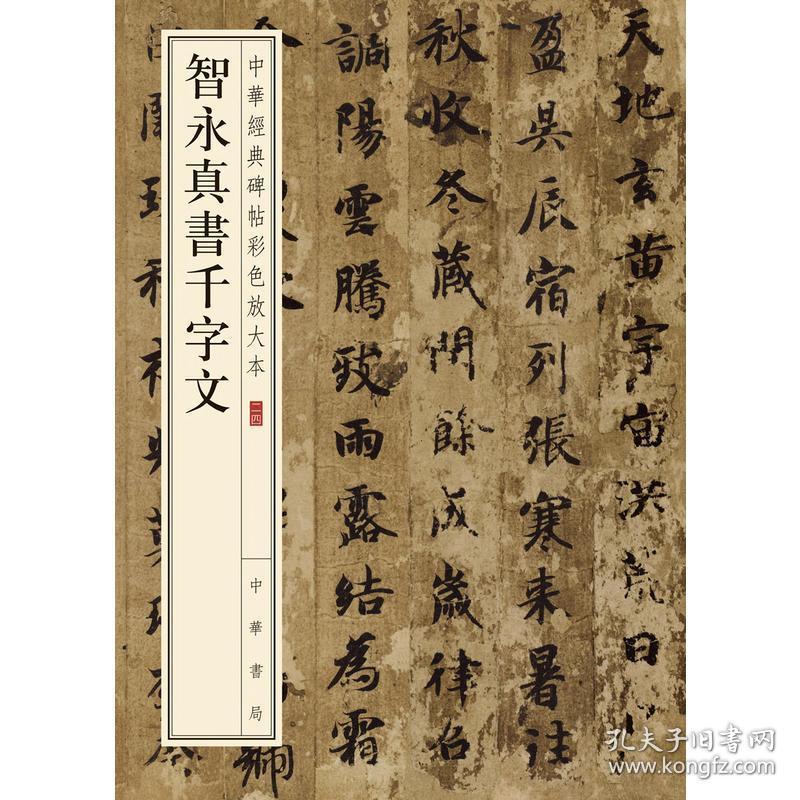 天地玄黄宇宙洪荒日
盈昃辰宿列張寒来暑往
秋收冬蔵閏餘成歲律召
調陽雲騰致雨露結為霜
中華經典碑帖彩色放大本
二四
中華書局
智永真書千字文
孔夫子旧书网
www.kongfz.com